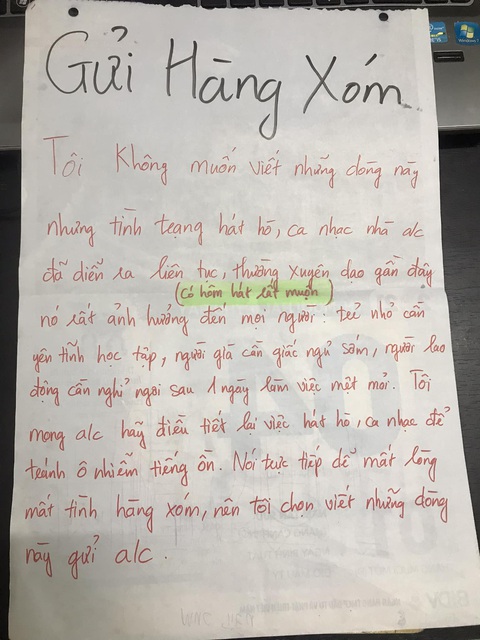 Gửi Hàng Xóm
Tôi Không muốn viết những dòng này
nhưng tình trạng hát hò, ca nhạc nhà a/c
đã diễn ra liên tục, thường xuyên dạo gần đây
(có hôm hát rất muộn)
nó rất ảnh hưởng đến mọi người: trẻ nhỏ cần
yên tĩnh học tập, người già cần giấc ngủ sớm, người lao
động cần nghỉ ngơi sau 1 ngày làm việc mệt mỏi. Tôi
mong a/c hãy điều tiết lại việc hát hò, ca nhạc để
tránh ô nhiễm tiếng ồn. Nói trực tiếp dễ mất lòng
mất tình hàng xóm, nên tôi chọn viết những dòng
này gửi a/c.